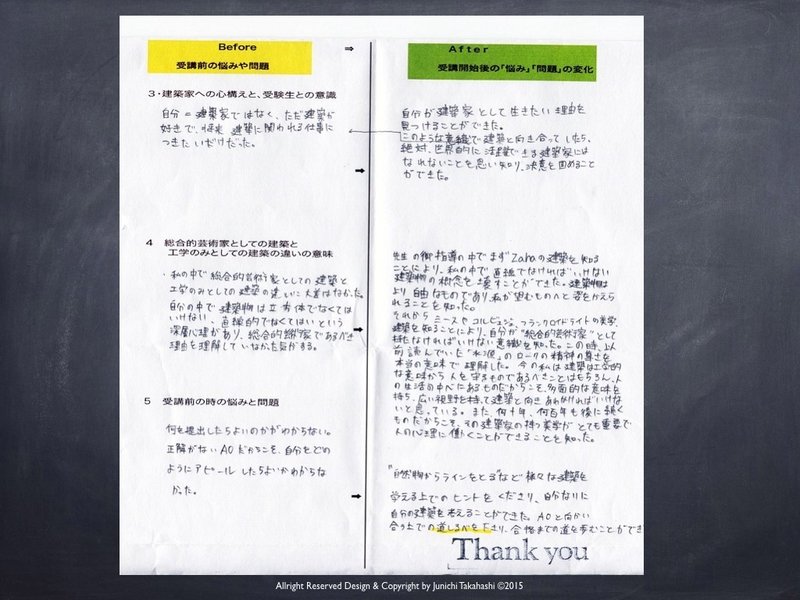 Before
⇒
受講前の悩みや問題
After
受講開始後の「悩み」「問題」の変化
3・建築家への心構えと、受験生との意識
自分＝建築家ではなく、ただ建築が
好きで、将来 建築に関われる仕事に
つきたいだけだった。
自分が建築家として生きたい理由を
見つけることができた。
このような意識で建築と向き合ってしたら、
絶対、世界的に活躍できる建築家には
なれないことを思い知り、決意を固めること
ができた。
4 総合的芸術家としての建築と
工学のみとしての建築の違いの意味
・私の中で総合的芸術家としての建築と
工学のみとしての建築の違いに大差はなかった。
自分の中で建築物は立方体でなくては
いけない、直線的でなくてはいという
深層心理があり、総合的芸術家であるべき
理由を理解していなかった気がする。
先生の御指導の中でまずZahaの建築を知る
ことにより、私の中で直線でなければいけない
建築物の概念を壊すことができた。建築物は
より自由なものであり、私が望むものへと姿をかえら
れることを知った。
それからミースやコルビュジェ、フランクロイドライトの美学、
建築を知ることにより、自分が"総合的芸術家"として
持たなければいけない意識を知った。この時、以
前読んでいた"水源"のロークの精神の尊さを
本当の意味で理解した。今の私は建築は工学的
な意味から人を守るものであるべきことはもちろん、人
の生活の中心にあるものだからこそ、多面的な意味を
持ち、広い視野を持って建築と向きあわなければいけな
いと思っている。また、何十年、何百年も後に続く
ものだからこそ、その建築家の持つ美学がとても重要で
人の心理に働くことができることを知った。
5 受講前の時の悩みと問題
何を提出したらよいのかがわからない。
正解がないAOだからこそ、自分をどの
ようにアピールしたらよいかわからな
かった。
"自然物からラインをとる"など様々な建築を
考える上でのヒントをくださり、自分なりに
自分の建築を考えることができた。AOと向かい
合う上での道しるべを下さり、合格までの道を歩むことができ
Thank you
Allright Reserved Design & Copyright by Junichi Takahashi ©2015